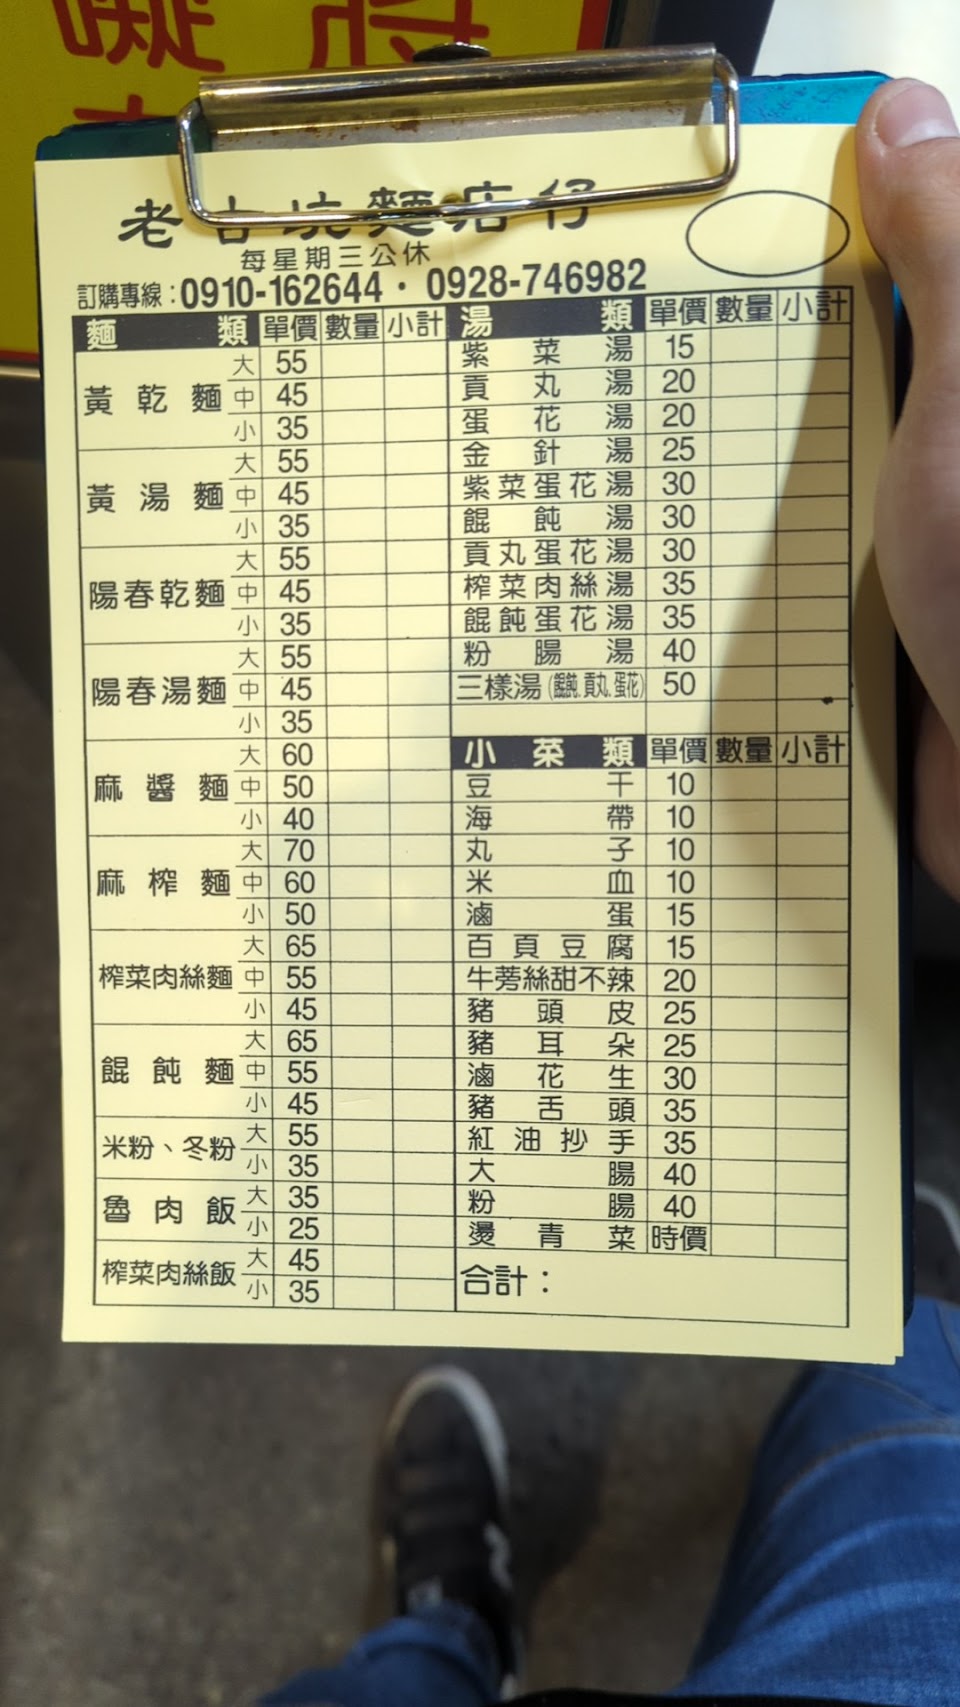 老古坑麵店仔
每星期三公休
訂購專線：0910-162644・0928-746982
麵類 單價 數量 小計
黃乾麵 大 55
中 45
小 35
黃湯麵 大 55
中 45
小 35
陽春乾麵 大 55
中 45
小 35
陽春湯麵 大 55
中 45
小 35
麻醬麵 大 60
中 50
小 40
麻榨麵 大 70
中 60
小 50
榨菜肉絲麵 大 65
中 55
小 45
餛飩麵 大 65
中 55
小 45
米粉、冬粉 大 55
小 35
魯肉飯 大 35
小 25
榨菜肉絲飯 大 45
小 35
湯類 單價 數量 小計
紫菜湯 15
貢丸湯 20
蛋花湯 20
金針湯 25
紫菜蛋花湯 30
餛飩湯 30
貢丸蛋花湯 30
榨菜肉絲湯 35
餛飩蛋花湯 35
粉腸湯 40
三樣湯(餛飩.貢丸.蛋花) 50
小菜類 單價 數量 小計
豆干 10
海帶 10
丸子 10
米血 10
滷蛋 15
百頁豆腐 15
牛蒡絲甜不辣 20
豬頭皮 25
豬耳朵 25
滷花生 30
豬舌頭 35
紅油抄手 35
大腸 40
粉腸 40
燙青菜 時價
合計：